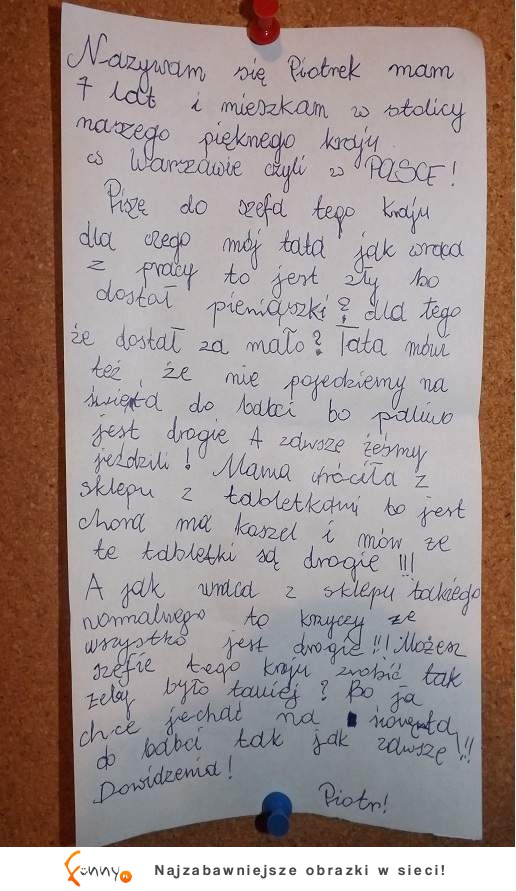 Nazywam się Piotrek mam
7 lat i mieszkam w stolicy
naszego pięknego kraju
w Warszawie czyli w POLSCE!
Piszę do szefa tego kraju
dla czego mój tata jak wraca
z pracy to jest zły bo
dostał pieniąszki? dla tego
że dostał za mało? Tata mówi
też że nie pojedziemy na
święta do babci bo paliwo
jest drogie A zawsze żeśmy
jeździli! Mama wróciła z
sklepu z tabletkami bo jest
chora ma kaszel i mów że
te tabletki są drogie !!!
A jak wraca z sklepu takiego
normalnego to krzyczy że
wszystko jest drogie!!! Możesz
szefie tego kraju zrobić tak
żeby było taniej? Bo ja
chce jechać na święta
do babci tak jak zawsze!!!
Dowidzenia!
Piotr!
funny.pl Najzabawniejsze obrazki w sieci!